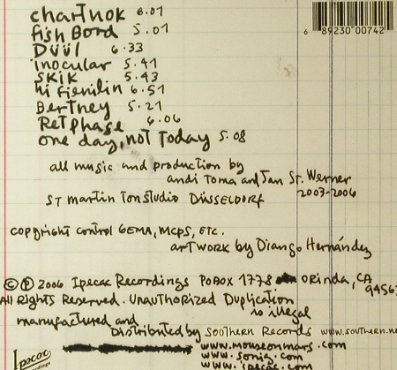 chartnok 6.01
fishBord 5.01
Düül 6.33
inocular 5.41
skik 5.43
hi fienilin 6.51
Bertney 5.21
Retphase 6.06
one day, not Today 5.08
6 89230 00742
all music and production by
andi Toma and Jan St. Werner
ST martin Tonstudio Düsseldorf 2003-2006
copyright control GEMA, MCPS, ETC.
artwork by Diango Hernández
© ℗ 2006 Ipecac Recordings POBOX 1778 Orinda, CA
94563
All Rights Reserved. Unauthorized Duplication
is illegal
manufactured and
Distributed by Southern Records www.southern.ne
www.mouseonmars.com
www.sonig.com
www.ipecac.com
Ipecac